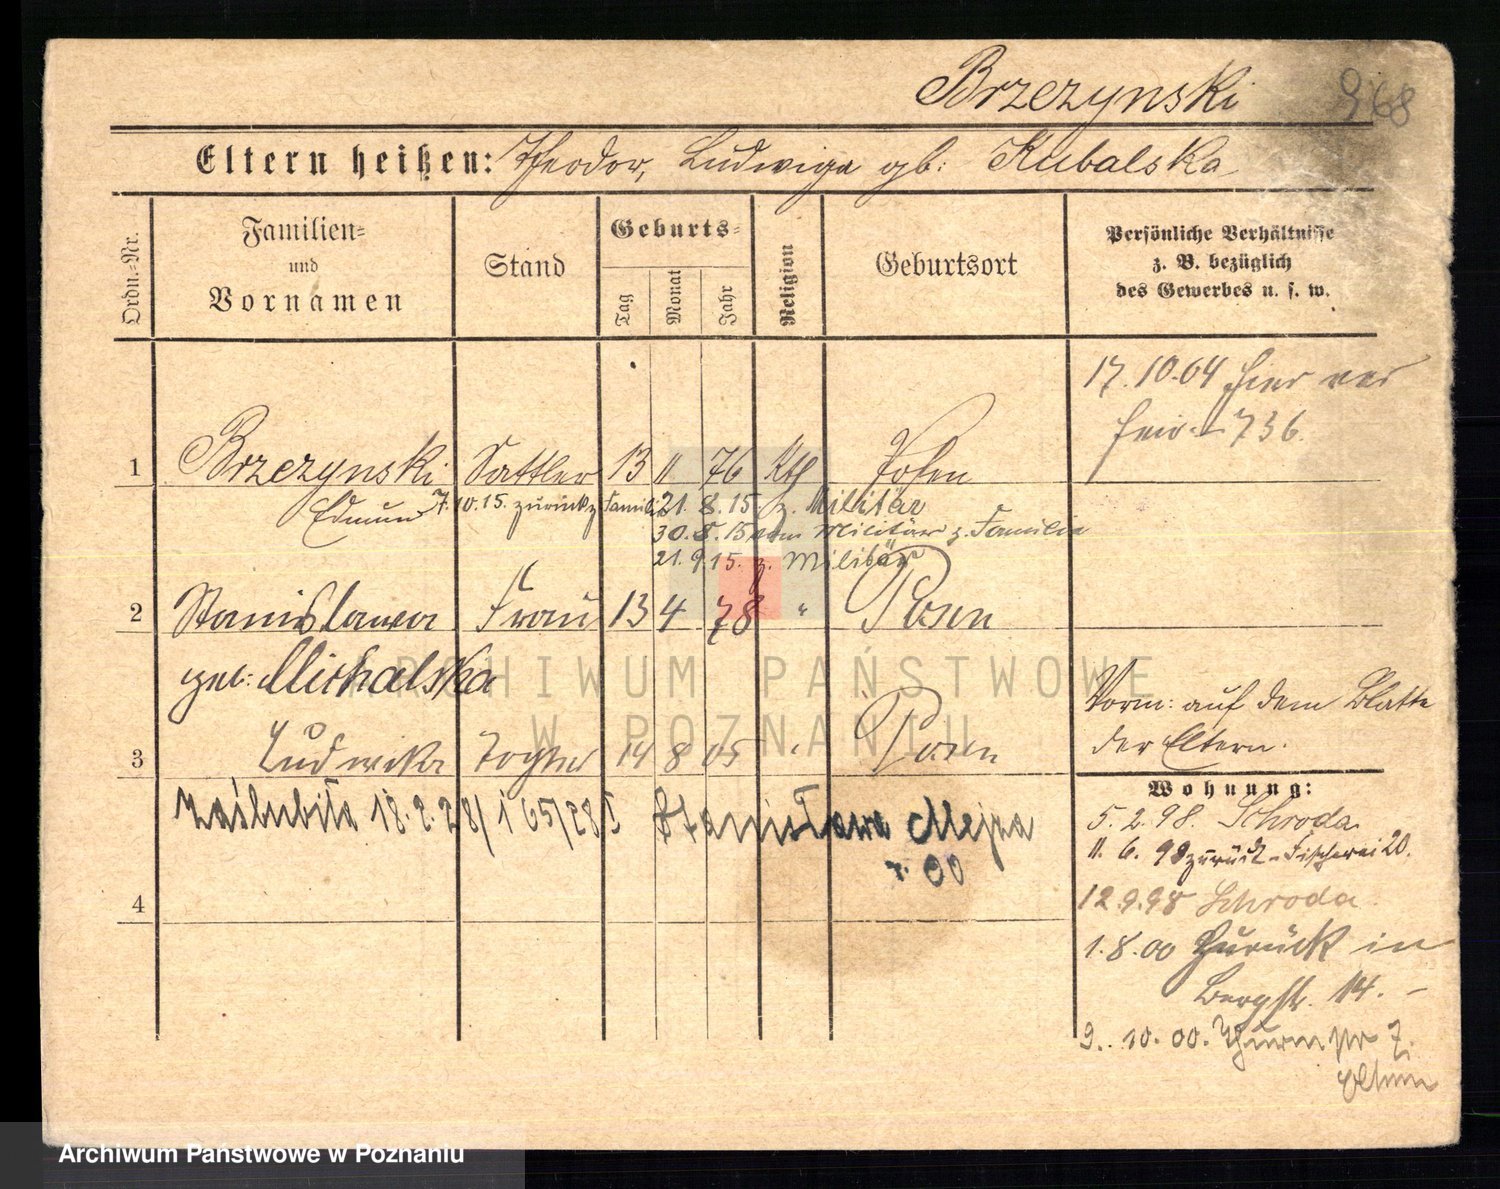 Brzezynski 968
Eltern heißen: Theodor, Ludwiga gb: Kubalska
Ordn.-Nr.
Familien- und Vornamen
Stand
Geburts-
Tag
Monat
Jahr
Religion
Geburtsort
Persönliche Verhältnisse
z. B. bezüglich
des Gewerbes u. s. w.
17.10.04 hier
736.
1 Brzezynski Sattler 13 11 76 Kth Posen
Edmund 7.10.15. zurück z. Familie 21.8.15 z. Militär
30.8.15 vom Militär z. Familie
21.9.15. z. Militär
2 Stanislawa Frau 13 4 78 " Posen
geb: Michalska
Vorm: auf dem Blatte
der Eltern.
3 Ludwika Tochter 14 8 05 " Posen
zaślubiła 18.2.28/ Stanisława Mejza
r. 00
4
Wohnung:
5.2.98. Schroda
11.6.98 zurück - Fischerei 20.
12.9.98 Schroda.
1.8.00 Zurück in
Bergstr. 14. -
9.10.00. 7.
Eltern
ARCHIWUM PAŃSTWOWE
W POZNANIU
Archiwum Państwowe w Poznaniu